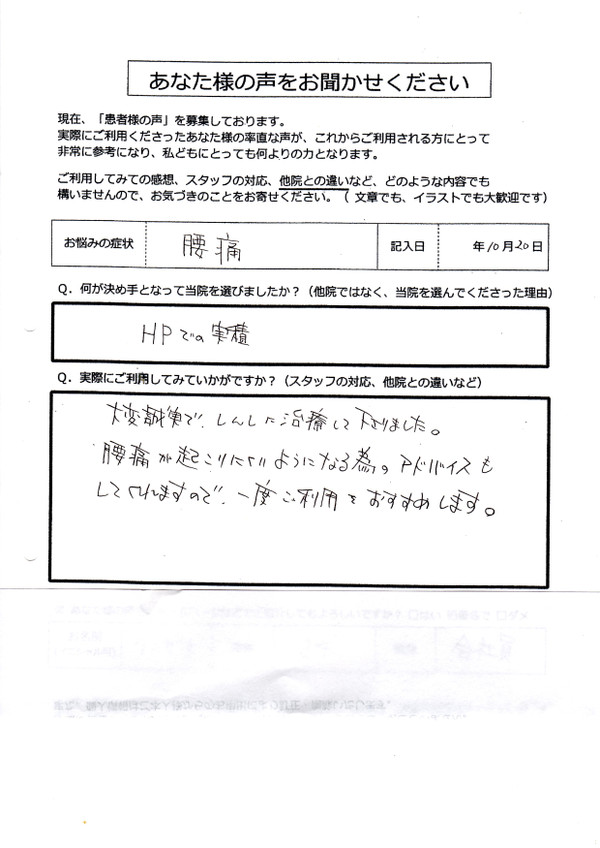 あなた様の声をお聞かせください
現在、「患者様の声」を募集しております。
実際にご利用くださったあなた様の率直な声が、これからご利用される方にとって
非常に参考になり、私どもにとっても何よりの力となります。
ご利用してみての感想、スタッフの対応、他院との違いなど、どのような内容でも
構いませんので、お気づきのことをお寄せください。（ 文章でも、イラストでも大歓迎です）
お悩みの症状 腰痛 記入日 年10月20日
Q．何が決め手となって当院を選びましたか？（他院ではなく、当院を選んでくださった理由）
HPでの実積
Q．実際にご利用してみていかがですか？（スタッフの対応、他院との違いなど）
大変誠実で、しんしに治療して下さりました。
腰痛が起こりにくいようになる為のアドバイスも
してくれますので、一度ご利用をおすすめします。